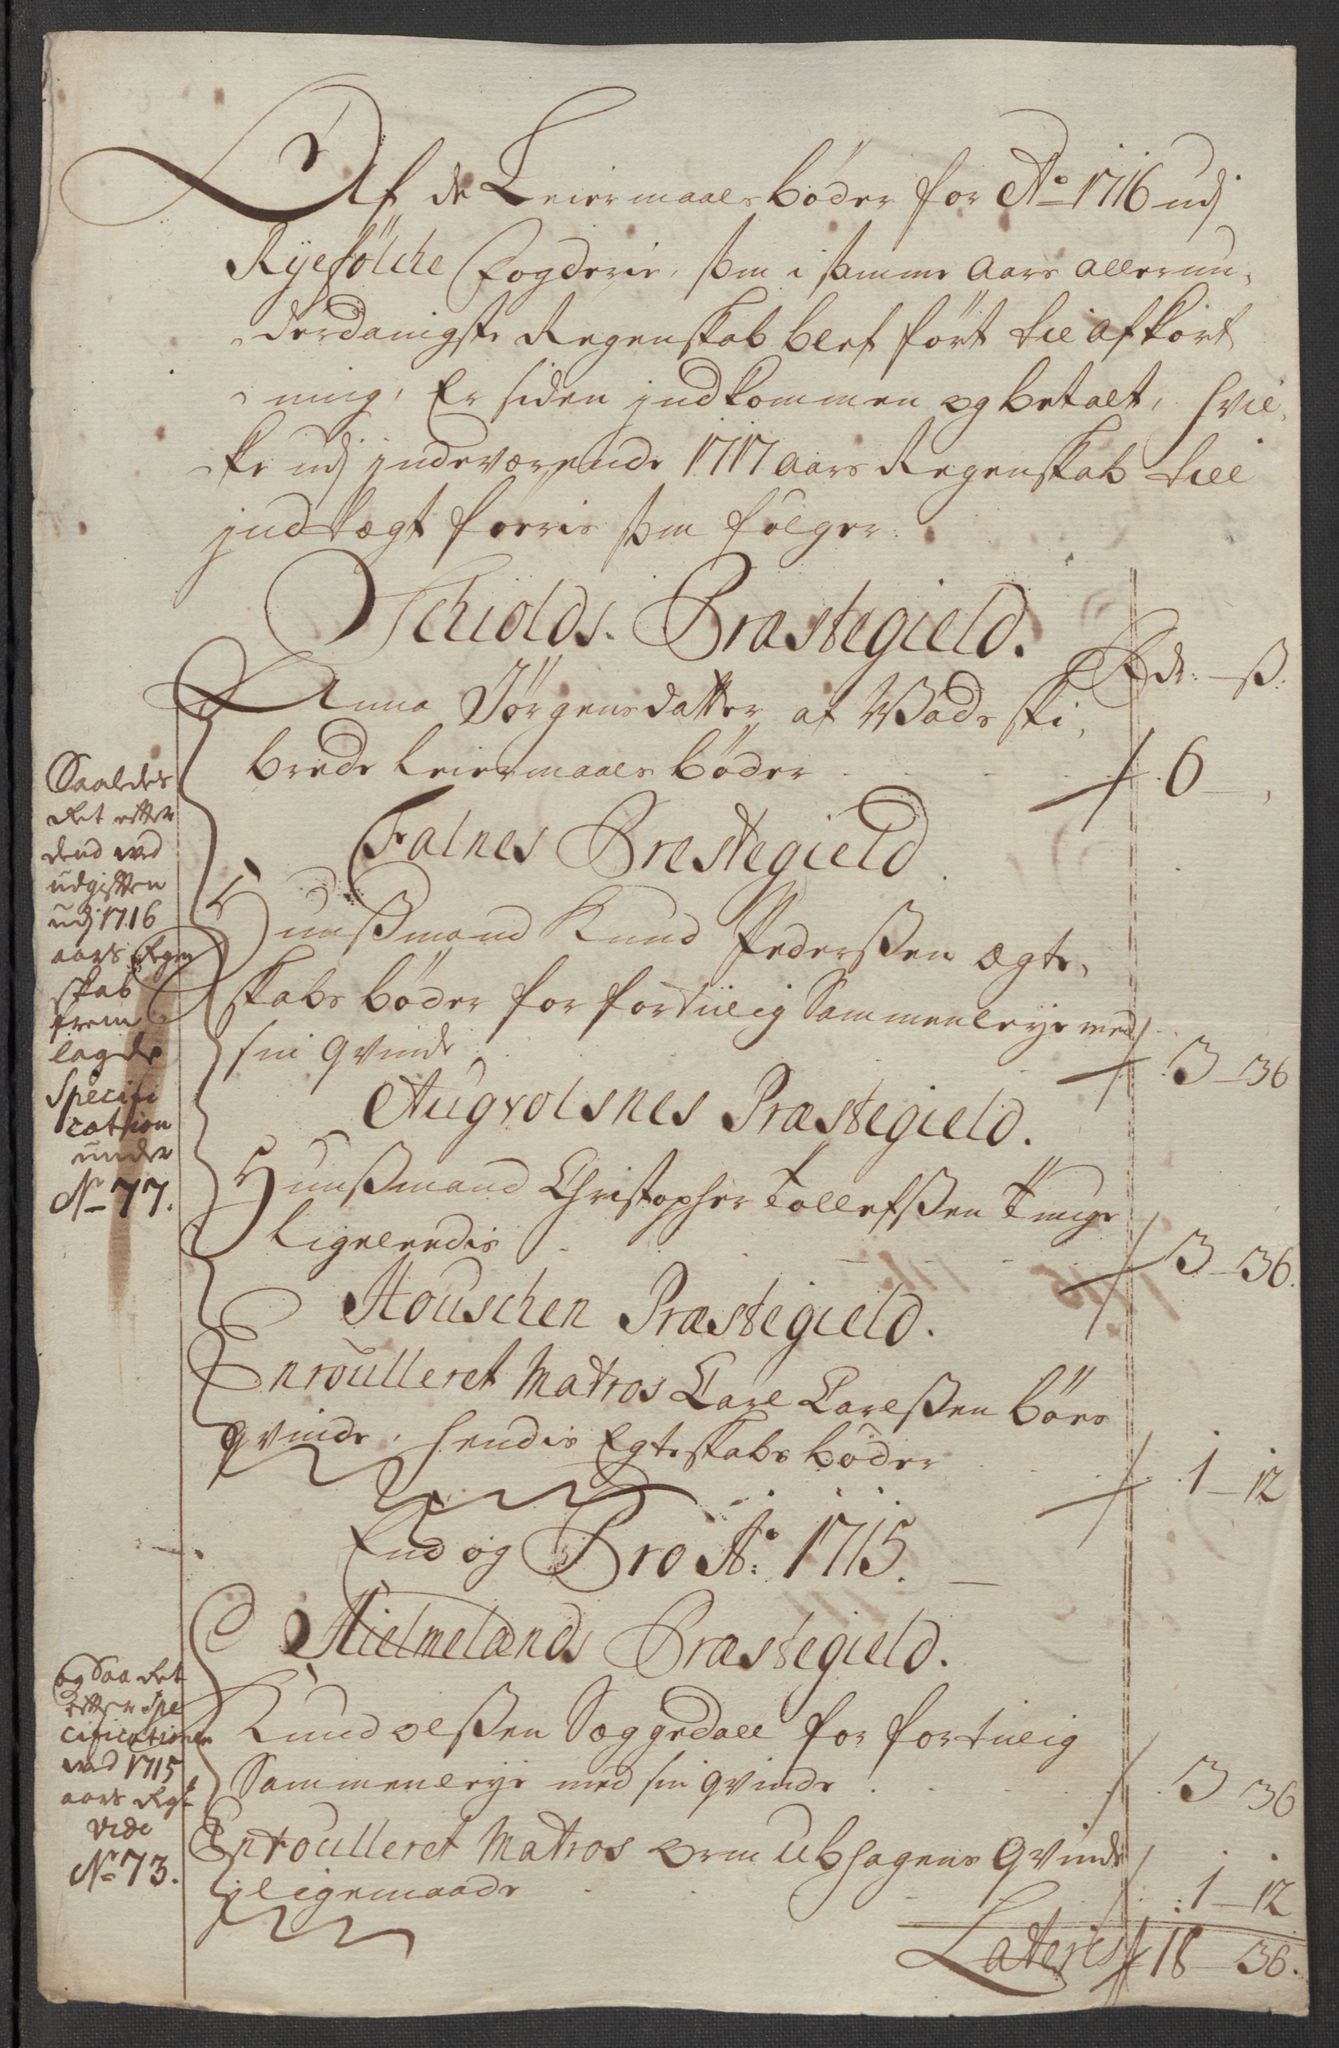 Af de Leiermaals bøder for Ao 1716 udj
Ryefölche Fogderie, som i samme Aars allerun,
derdanigste Regenskab blef ført til afkort
ning, Er siden jndkommen og betalt, hvil,
ke udj jndeværende 1717 Aars Regenskab till
jndtægt føeris som følger
Schiolds Præstegield.
Rdr. ß.
Anna Jörgensdatter af Wads ski,
brede Leiermaals bøder 6 —
Falnes Prestegield
Huußmand Knud Pederßen Ægte,
skabs bøder for fortiilig Sammenleye med
sin qvinde 3 — 36
Augvolsnes Præstegield.
Huußmand Christopher Tollefßen
Ligeleedis 3 — 36.
Houschen Præstegield.
Enroulleret Matros Carl Carlßen Börs
qvinde, hendis Egteskabs bøder 1 — 12
End og Pro Ao: 1715.
Hielmelands Præstegield.
Knud Olßen Seggedall for fortiilig
Sammenleye med sin qvinde 3 36
Enroulleret Matros Orm Ubhagens qvinde
jligemaade 1 — 12
Lateris 18 — 36.
Saaledes
det efter
dend ved
udgiften
udj 1716
aars Regen
skab
frem
lagde
Specifi
cation
under
No 77.
og Saa det
efter Spe
cificationen
ved 1715
aars Regt
vide
No 73.